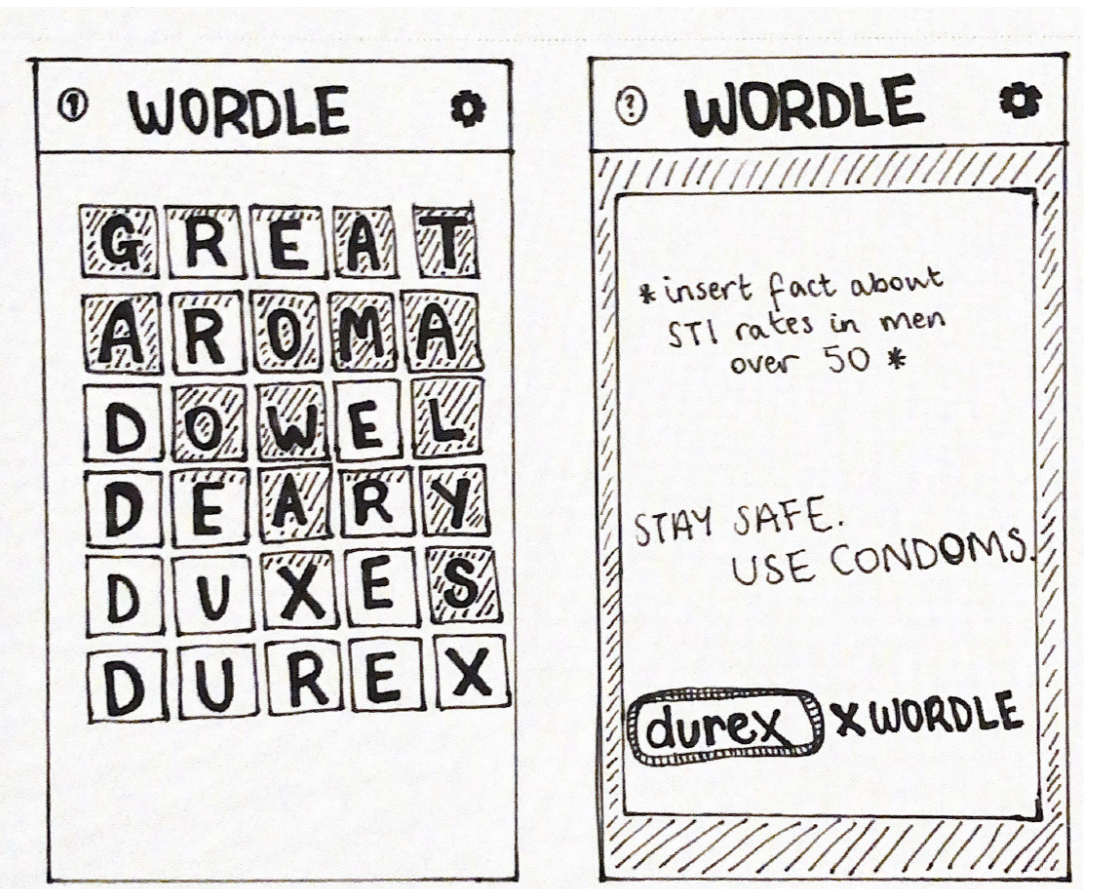 ? WORDLE
GREAT
AROMA
DOWEL
DEARY
DUXES
DUREX
? WORDLE
* insert fact about
STI rates in men
over 50 *
STAY SAFE.
USE CONDOMS.
durex X WORDLE